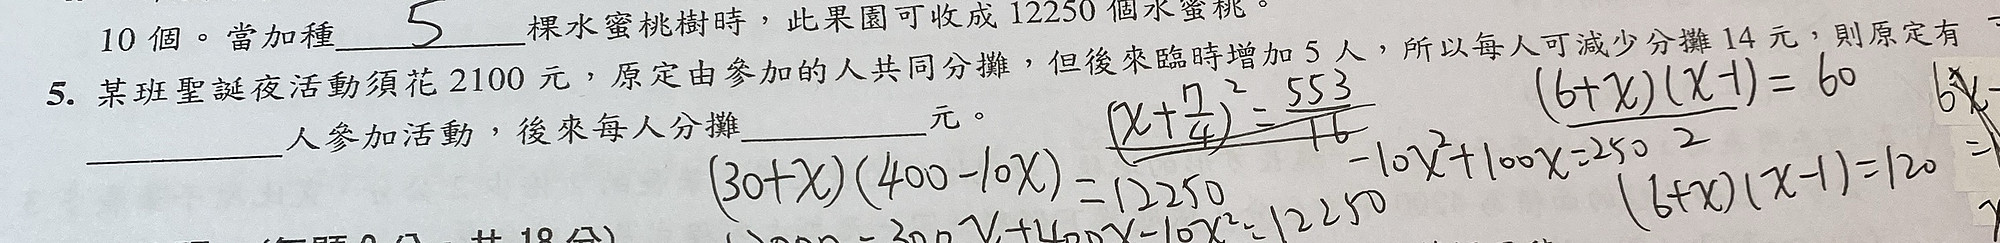 10 個。當加種 5 棵水蜜桃樹時，此果園可收成 12250 個水蜜桃。
5. 某班聖誕夜活動須花 2100 元，原定由參加的人共同分攤，但後來臨時增加 5 人，所以每人可減少分攤 14 元，則原定有
人參加活動，後來每人分攤 元。
(x+7/4)²=553/16
(6+x)(x-1)/2=60
(30+x)(400-10x)=12250
-10x²+100x=250
(6+x)(x-1)=120
300x+400x-10x²=12250
共 18 分)